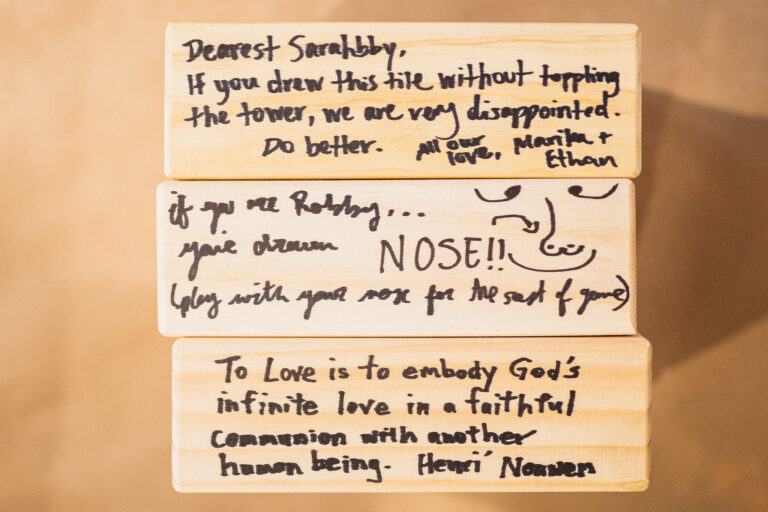 Dearest Sarahbby,
If you drew this tile without toppling
the tower, we are very disappointed.
Do better. All our love, Marika + Ethan
if you are Robby,...
you've drawn NOSE!!
(play with your nose for the rest of game)
To Love is to embody God's
infinite love in a faithful
communion with another
human being. Henri Nouwen